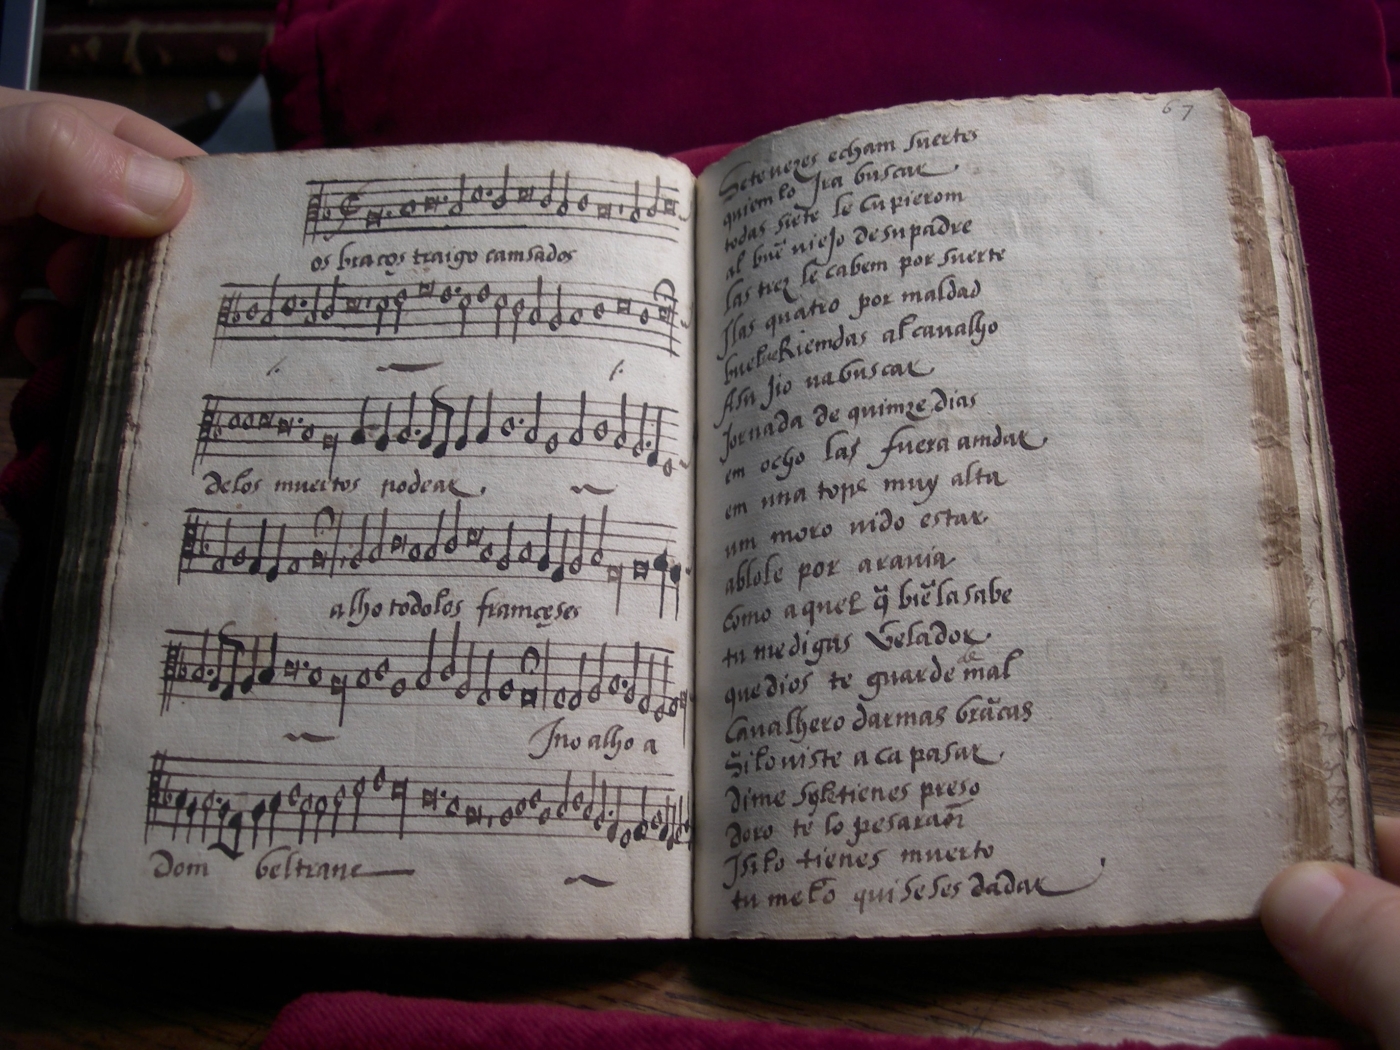 os braços traigo camsados
Delos muertos rodear
alho todolos framçeses
Ino alho a
Dom beltrane
67
Sete vezes echam suertes
quiem lo Ira buscar
todas siete le cupierom
al buẽ viejo de su padre
las trez le cabem por suerte
Ilas quatro por maldad
buelve Riemdas al cavalho
Asu Jio va buscar
Jornada de quimze dias
em ocho las fuera amdar
em una tore muy alta
um moro vido estar
ablole por aravia
como aquel q̃ biẽ la sabe
tu me digas Velador
que dios te guarde de mal
Cavalhero darmas brãcas
Si lo viste a ca pasar
Dime sy le tienes preso
Doro te lo pesarañ
Isi lo tienes muerto
tu me lo quiseses dadar